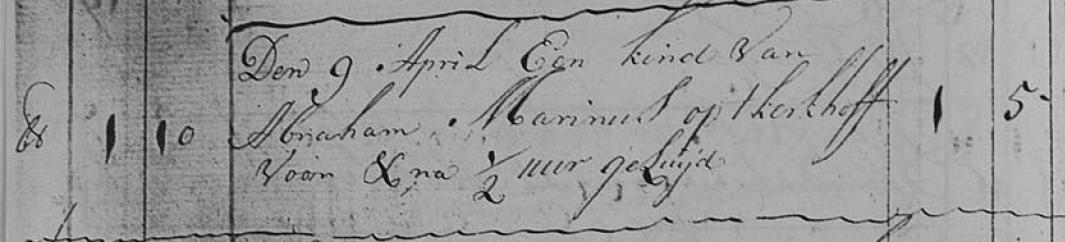 Den 9 April Een kind van
& 1 10 Abraham Marinus op tkerkhoff 1 5
Voor & na 1/2 uur geluijd